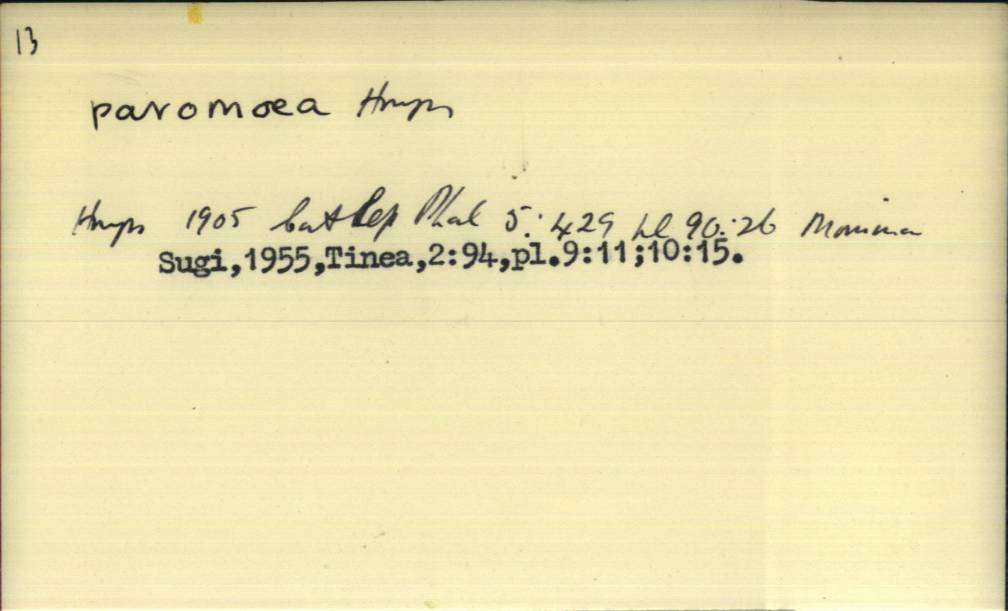 13
paromoea Hmps
Hmps 1905 Cat Lep Phal 5: 429 pl 90:26 Monima
Sugi,1955,Tinea,2:94,pl.9:11;10:15.